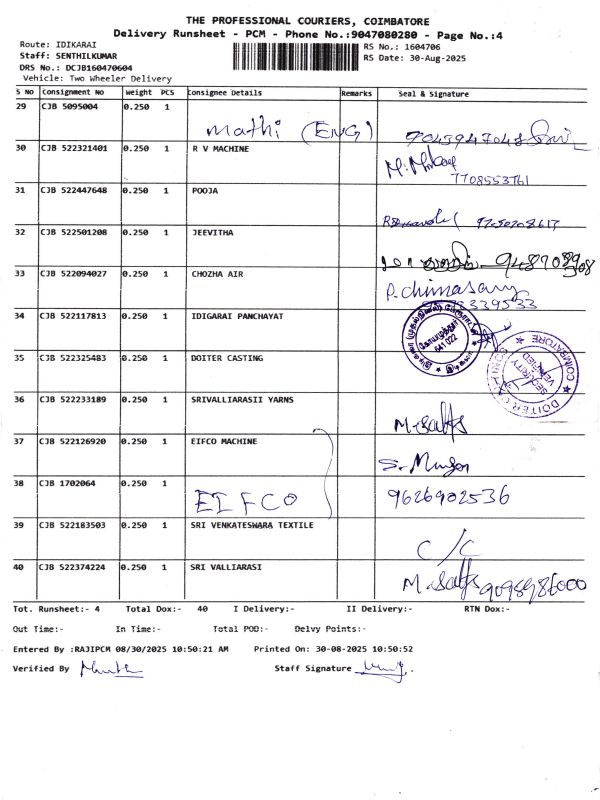 THE PROFESSIONAL COURIERS, COIMBATORE
Delivery Runsheet - PCM - Phone No.:9047080280 - Page No.:4
Route: IDIKARAI
RS No.: 1604706
Staff: SENTHILKUMAR
RS Date: 30-Aug-2025
DRS No.: DCJB160470604
Vehicle: Two Wheeler Delivery
S No Consignment No Weight PCS Consignee Details Remarks Seal & Signature
29 CJB 5095004 0.250 1
Mathi (ENG)
30 CJB 522321401 0.250 1 R V MACHINE
7708553761
31 CJB 522447648 0.250 1 POOJA
32 CJB 522501208 0.250 1 JEEVITHA
33 CJB 522094027 0.250 1 CHOZHA AIR
P. Chinnasamy
34 CJB 522117813 0.250 1 IDIGARAI PANCHAYAT
கோயமுத்தூர்
641 022
35 CJB 522325483 0.250 1 DOITER CASTING
COIMBATORE
SECURITY
VERIFIED
36 CJB 522233189 0.250 1 SRIVALLIARASII YARNS
37 CJB 522126920 0.250 1 EIFCO MACHINE
38 CJB 1702064 0.250 1
EIFCO
9626902536
39 CJB 522183503 0.250 1 SRI VENKATESWARA TEXTILE
C/C
40 CJB 522374224 0.250 1 SRI VALLIARASI
Tot. Runsheet:- 4 Total Dox:- 40 I Delivery:- II Delivery:- RTN Dox:-
Out Time:- In Time:- Total POD:- Delvy Points:-
Entered By :RAJIPCM 08/30/2025 10:50:21 AM Printed On: 30-08-2025 10:50:52
Verified By
Staff Signature